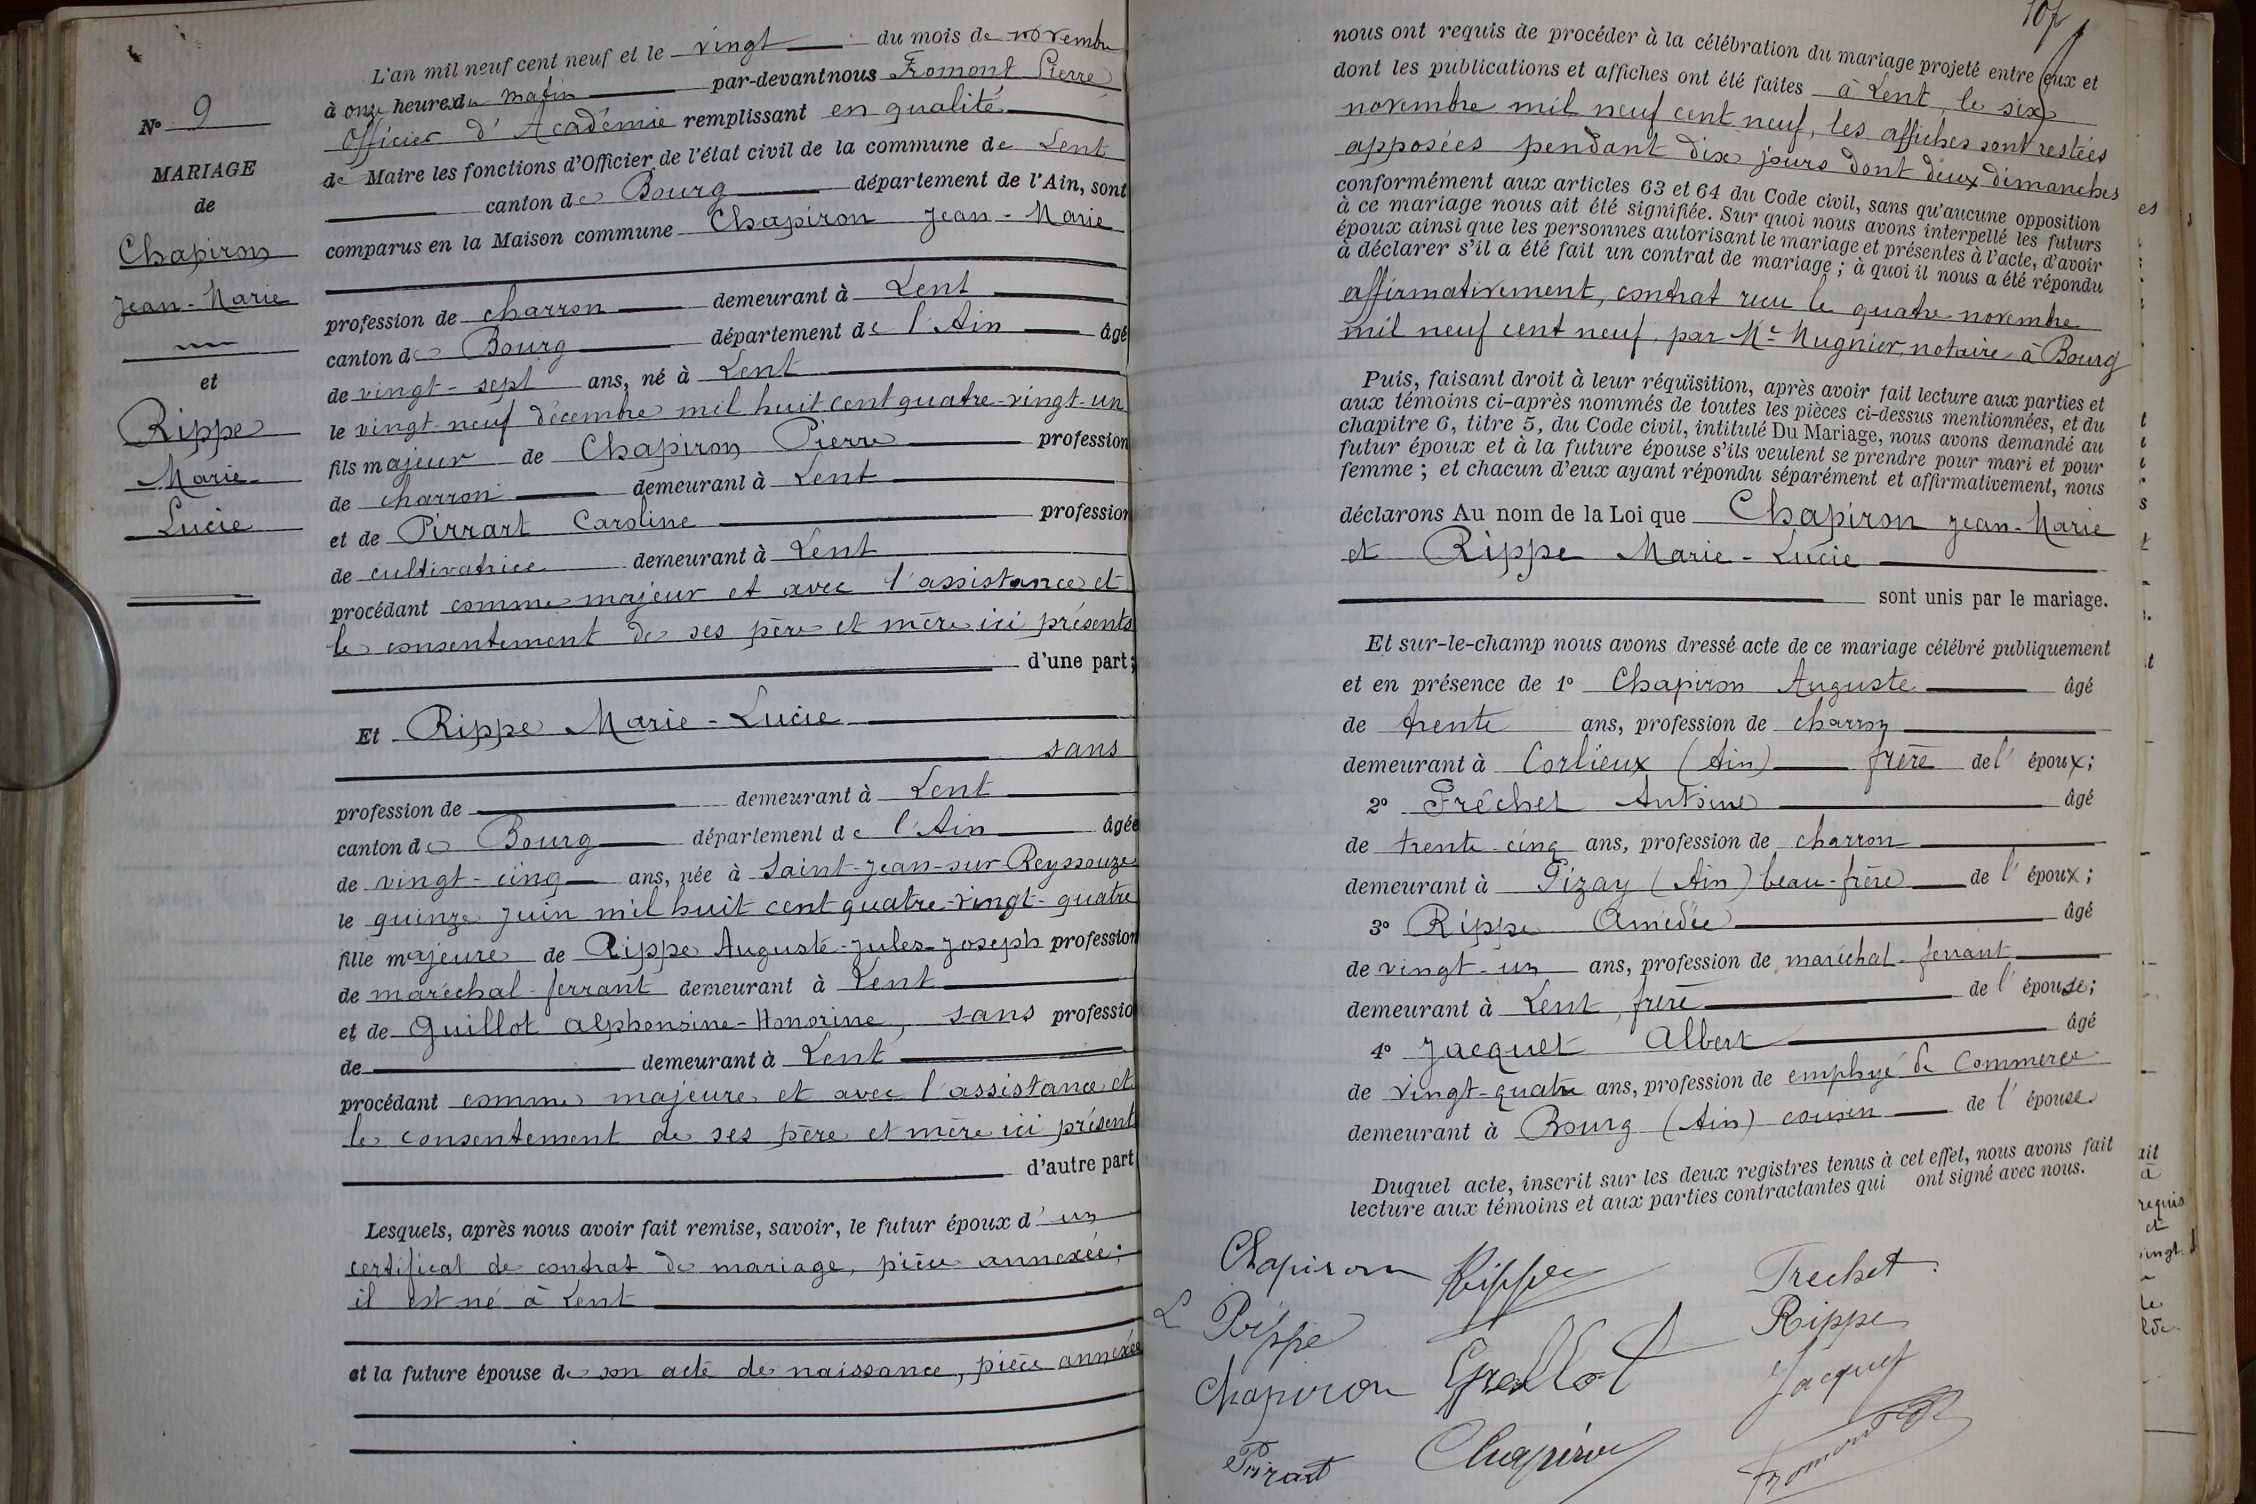 N° 9
MARIAGE
de
Chapiron
Jean-Marie
et
Rippe
Marie
Lucie
L'an mil neuf cent neuf et le vingt du mois de novembre
à onze heures du matin par-devant nous Fromont Pierre
Officier d'Académie remplissant en qualité
de Maire les fonctions d'Officier de l'état civil de la commune de Lent
canton de Bourg département de l'Ain, sont
comparus en la Maison commune Chapiron Jean-Marie
profession de charron demeurant à Lent
canton de Bourg département de l'Ain âgé
de vingt-sept ans, né à Lent
le vingt-neuf décembre mil huit cent quatre-vingt-un
fils majeur de Chapiron Pierre profession
de charron demeurant à Lent
et de Pirrart Caroline profession
de cultivatrice demeurant à Lent
procédant comme majeur et avec l'assistance et
le consentement de ses père et mère ici présents
d'une part;
Et Rippe Marie-Lucie
sans
profession de demeurant à Lent
canton de Bourg département de l'Ain âgée
de vingt-cinq ans, née à Saint-Jean-sur-Reyssouze
le quinze juin mil huit cent quatre-vingt-quatre
fille majeure de Rippe Auguste-Jules-Joseph profession
de maréchal-ferrant demeurant à Lent
et de Guillot Alphonsine-Honorine, sans professio
de demeurant à Lent
procédant comme majeure et avec l'assistance et
le consentement de ses père et mère ici présent
d'autre part
Lesquels, après nous avoir fait remise, savoir, le futur époux d'un
certificat de contrat de mariage, pièce annexée;
il est né à Lent
et la future épouse de son acte de naissance, pièce annexée
107
nous ont requis de procéder à la célébration du mariage projeté entre eux et
dont les publications et affiches ont été faites à Lent, le six
novembre mil neuf cent neuf, les affiches sont restées
apposées pendant dix jours dont deux dimanches
conformément aux articles 63 et 64 du Code civil, sans qu'aucune opposition
à ce mariage nous ait été signifiée. Sur quoi nous avons interpellé les futurs
époux ainsi que les personnes autorisant le mariage et présentes à l'acte, d'avoir
à déclarer s'il a été fait un contrat de mariage; à quoi il nous a été répondu
affirmativement, contrat reçu le quatre novembre
mil neuf cent neuf, par Me Mugnier, notaire à Bourg
Puis, faisant droit à leur réquïsition, après avoir fait lecture aux parties et
aux témoins ci-après nommés de toutes les pièces ci-dessus mentionnées, et du
chapitre 6, titre 5, du Code civil, intitulé Du Mariage, nous avons demandé au
futur époux et à la future épouse s'ils veulent se prendre pour mari et pour
femme; et chacun d'eux ayant répondu séparément et affirmativement, nous
déclarons Au nom de la Loi que Chapiron Jean-Marie
et Rippe Marie-Lucie
sont unis par le mariage.
Et sur-le-champ nous avons dressé acte de ce mariage célébré publiquement
et en présence de 1° Chapiron Auguste âgé
de trente ans, profession de charron
demeurant à Corlieux (Ain) frère de l'époux;
2° Fréchet Antoine âgé
de trente-cinq ans, profession de charron
demeurant à Pizay (Ain) beau-frère de l'époux;
3° Rippe Amédée âgé
de vingt-un ans, profession de maréchal-ferrant
demeurant à Lent, frère de l'épouse;
4° Jacquet Albert âgé
de vingt-quatre ans, profession de employé de Commerce
demeurant à Bourg (Ain) cousin de l'épouse
Duquel acte, inscrit sur les deux registres tenus à cet effet, nous avons fait
lecture aux témoins et aux parties contractantes qui ont signé avec nous.
Chapiron Rippe Frechet
L Rippe Rippe
Chapiron Jacquet
Chapiron Fromont